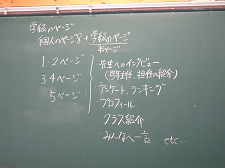 学級のページ
個人のページ8 + 学級のページ
1・2ページ
3 4ページ
5 ページ
先生へのインタビュー
アンケート、ランキング
プロフィール
クラス紹介
みんなへ一言
etc...